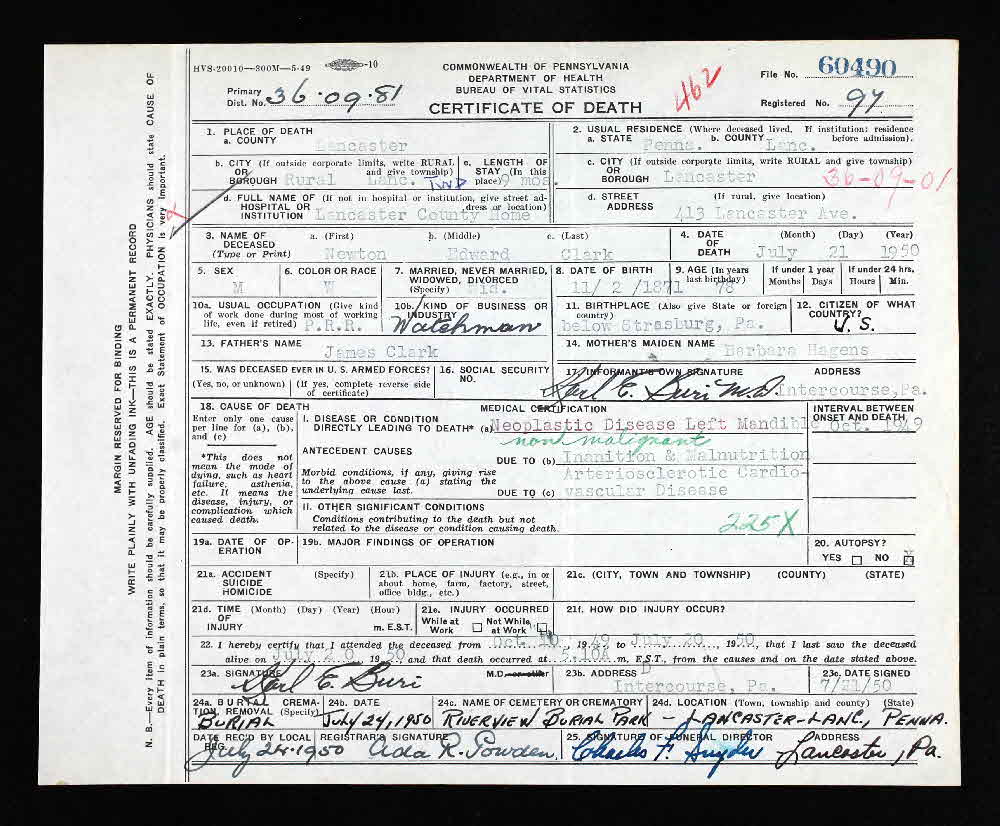 HVS-20010—300M—5-49 -10
COMMONWEALTH OF PENNSYLVANIA
DEPARTMENT OF HEALTH
BUREAU OF VITAL STATISTICS
CERTIFICATE OF DEATH
462
File No. 60490
Primary Dist. No. 36·09·81
Registered No. 97
1. PLACE OF DEATH
a. COUNTY Lancaster
2. USUAL RESIDENCE (Where deceased lived. If institution: residence before admission).
a. STATE Penns. b. COUNTY Lanc.
b. CITY (If outside corporate limits, write RURAL and give township)
OR BOROUGH Rural Lanc. Twp
c. LENGTH OF STAY (In this place) 9 mos.
c. CITY (If outside corporate limits, write RURAL and give township)
OR BOROUGH Lancaster 36-09-01
d. FULL NAME OF (If not in hospital or institution, give street address or location)
HOSPITAL OR INSTITUTION Lancaster County Home
d. STREET ADDRESS (If rural, give location)
413 Lancaster Ave.
3. NAME OF DECEASED (Type or Print)
a. (First) b. (Middle) c. (Last)
Newton Edward Clark
4. DATE OF DEATH (Month) (Day) (Year)
July 21 1950
5. SEX
M
6. COLOR OR RACE
W
7. MARRIED, NEVER MARRIED, WIDOWED, DIVORCED (Specify)
Wid.
8. DATE OF BIRTH
11/ 2 /1871
9. AGE (In years last birthday)
78
If under 1 year
Months Days
If under 24 hrs.
Hours Min.
10a. USUAL OCCUPATION (Give kind of work done during most of working life, even if retired)
P.R.R.
10b. KIND OF BUSINESS OR INDUSTRY
Watchman
11. BIRTHPLACE (Also give State or foreign country)
below Strasburg, Pa.
12. CITIZEN OF WHAT COUNTRY?
U. S.
13. FATHER'S NAME
James Clark
14. MOTHER'S MAIDEN NAME
Barbara Hagens
15. WAS DECEASED EVER IN U. S. ARMED FORCES?
(Yes, no, or unknown) (If yes, complete reverse side of certificate)
16. SOCIAL SECURITY NO.
17. INFORMANT'S OWN SIGNATURE ADDRESS
Karl E. Buri M.D. Intercourse, Pa.
18. CAUSE OF DEATH
Enter only one cause per line for (a), (b), and (c)
MEDICAL CERTIFICATION
INTERVAL BETWEEN ONSET AND DEATH
I. DISEASE OR CONDITION DIRECTLY LEADING TO DEATH* (a) Neoplastic Disease Left Mandible Oct. 1949
non malignant
*This does not mean the mode of dying, such as heart failure, asthenia, etc. It means the disease, injury, or complication which caused death.
ANTECEDENT CAUSES
Morbid conditions, if any, giving rise to the above cause (a) stating the underlying cause last.
DUE TO (b) Inanition & Malnutrition
Arteriosclerotic Cardio-
DUE TO (c) vascular Disease
II. OTHER SIGNIFICANT CONDITIONS
Conditions contributing to the death but not related to the disease or condition causing death.
225X
19a. DATE OF OPERATION
19b. MAJOR FINDINGS OF OPERATION
20. AUTOPSY?
YES NO X
21a. ACCIDENT SUICIDE HOMICIDE (Specify)
21b. PLACE OF INJURY (e.g., in or about home, farm, factory, street, office bldg., etc.)
21c. (CITY, TOWN AND TOWNSHIP) (COUNTY) (STATE)
21d. TIME OF INJURY (Month) (Day) (Year) (Hour)
m. E.S.T.
21e. INJURY OCCURRED
While at Work Not While at Work
21f. HOW DID INJURY OCCUR?
22. I hereby certify that I attended the deceased from Oct 10, 1949 to July 20, 1950, that I last saw the deceased
alive on July 20 1950 and that death occurred at m. E.S.T., from the causes and on the date stated above.
23a. SIGNATURE
Karl E. Buri M.D. or other
23b. ADDRESS
Intercourse, Pa.
23c. DATE SIGNED
7/21/50
24a. BURIAL, CREMATION, REMOVAL (Specify)
BURIAL
24b. DATE
July 24, 1950
24c. NAME OF CEMETERY OR CREMATORY
RIVERVIEW BURIAL PARK —
24d. LOCATION (Town, township and county) (State)
LANCASTER-LANC, PENNA.
DATE REC'D BY LOCAL REG.
July 24·1950
REGISTRAR'S SIGNATURE
Ada R. Sowden
25. SIGNATURE OF FUNERAL DIRECTOR ADDRESS
Charles F. Snyder Lancaster, Pa.
MARGIN RESERVED FOR BINDING
WRITE PLAINLY WITH UNFADING INK—THIS IS A PERMANENT RECORD
N. B.—Every item of information should be carefully supplied. AGE should be stated EXACTLY. PHYSICIANS should state CAUSE OF
DEATH in plain terms, so that it may be properly classified. Exact Statement of OCCUPATION is very important.